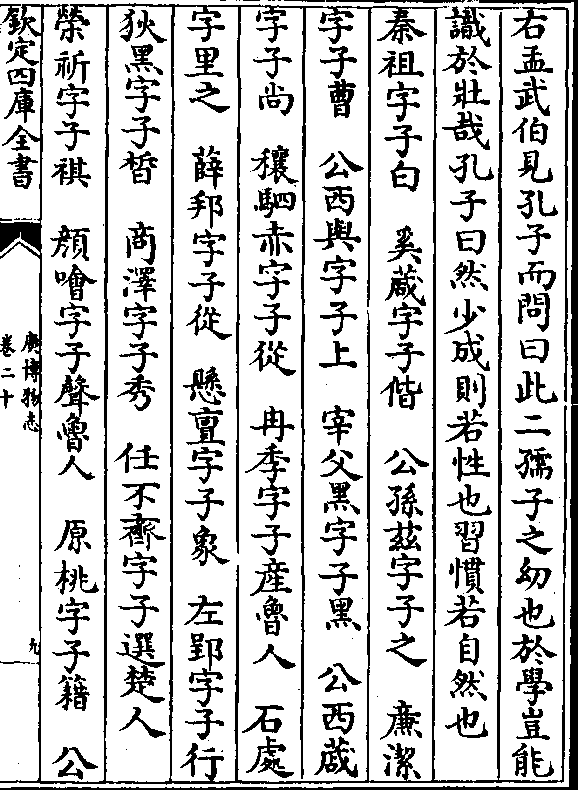 右孟武伯見孔子而問曰此二孺子之幼也於學豈能
識於壯哉孔子曰然少成則若性也習慣若自然也
秦祖字子白　奚蒧字子偕　公孫茲字子之　廉潔
字子曹　公西輿字子上　宰父黑字子黑　公西蒧
字子尚　穰駟赤字子從　冉季字子產魯人　石處
字里之　薛邦字子從　懸亶字子象　左郢字子行
狄黑字子晳　商澤字子秀　任不齊字子選楚人
榮祈字子祺　顔噲字子聲魯人　原桃字子籍　公
欽定四庫全書
廣博物志
卷二十
九